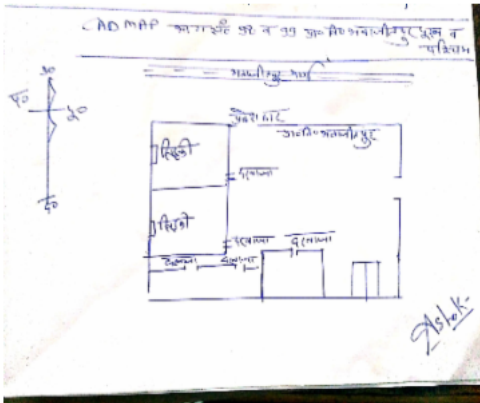 CAD MAP भाग सं० 98 व 99 प्रा० वि० भवानीपुर पूरब व
पश्चिम
भवानीपुर मार्ग
उ०
प०
पू०
द०
प्रवेश द्वार
प्रा० वि० भवानीपुर
खिड़की
दरवाजा
खिड़की
दरवाजा
दरवाजा
दरवाजा
दरवाजा
Ashok